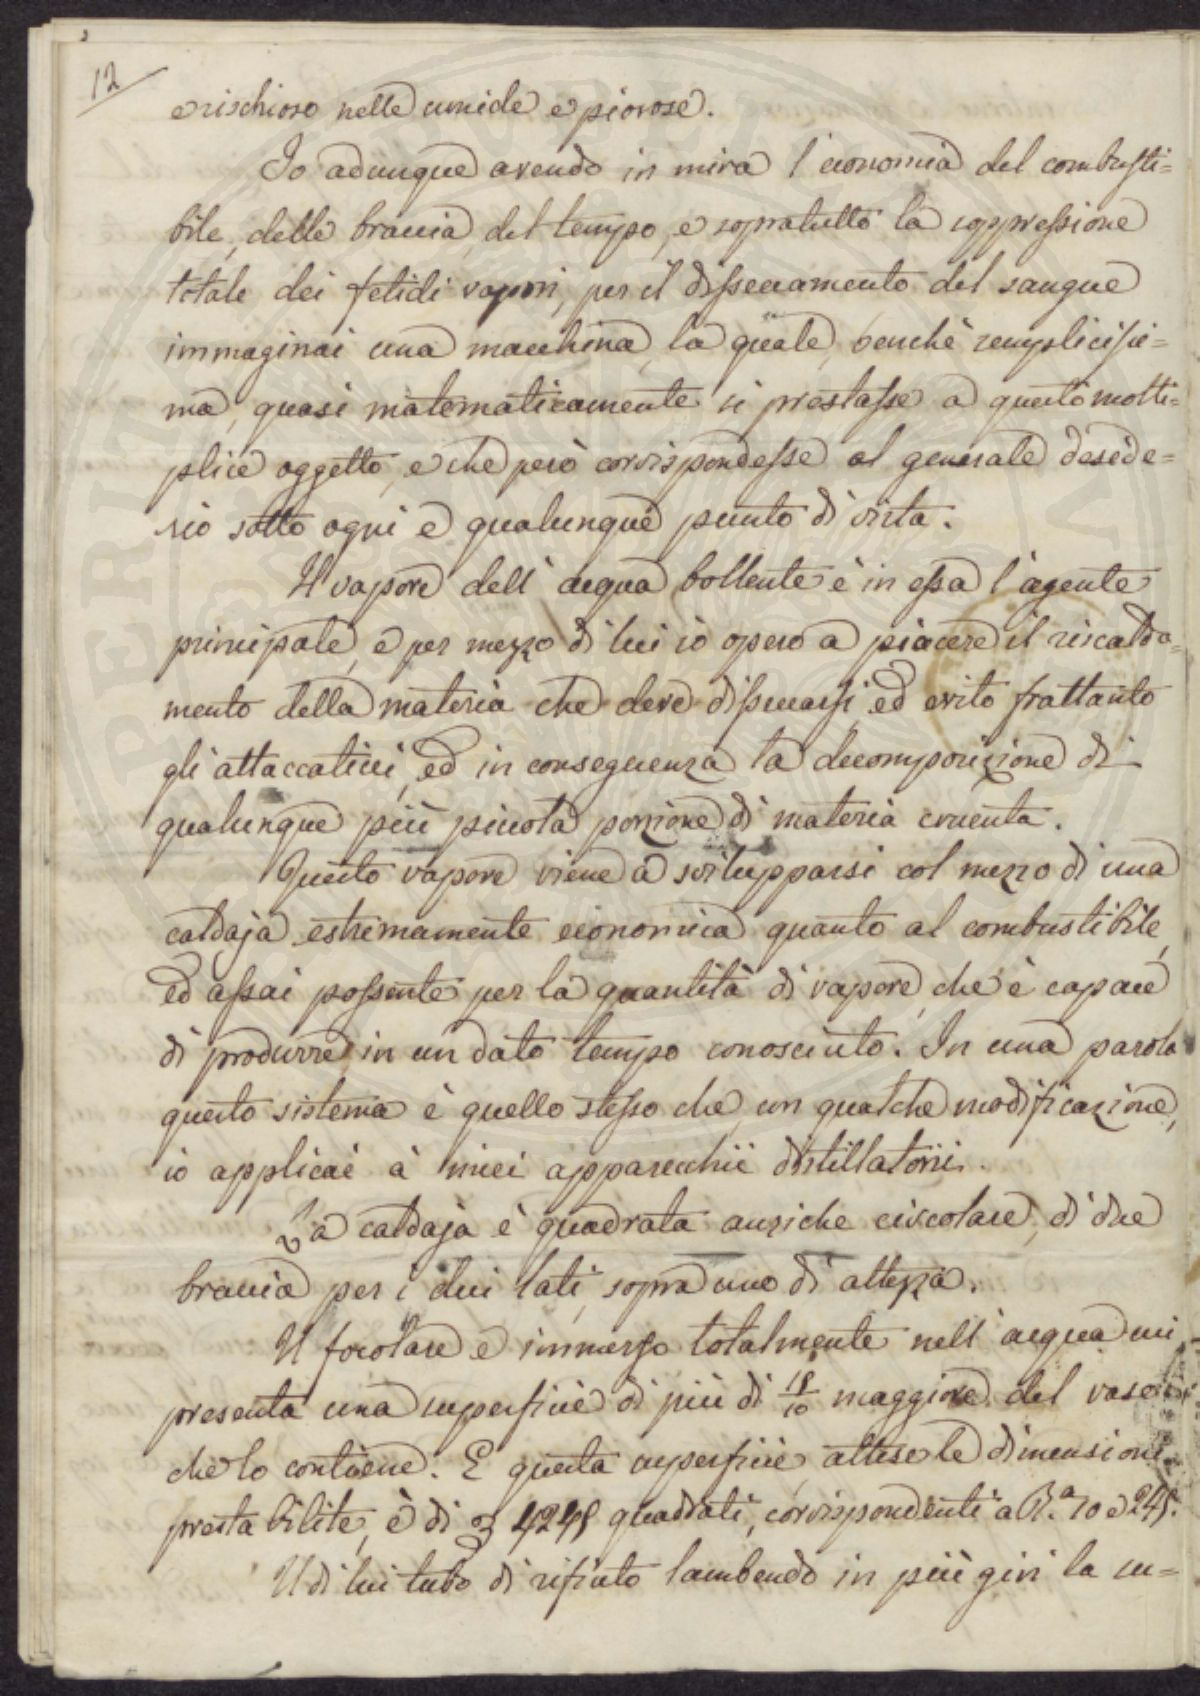 12
e rischioso nelle umide e piovose.
Io adunque avendo in mira l'economia del combusti=
bile, delle braccia, del tempo, e sopratutto la soppressione
totale dei fetidi vapori, per il disseccamento del sangue
immaginai una macchina, la quale, benchè semplicissi=
ma, quasi matematicamente si prestasse a questo molti=
plice oggetto, e che però corrispondesse al generale deside=
rio sotto ogni e qualunque punto di vista.
Il vapore dell'acqua bollente è in essa l'agente
principale, e per mezzo di lui io opero a piacere il riscalda=
mento della materia che deve disseccarsi, ed evito frattanto
gli attaccaticci, ed in conseguenza la decomposizione di
qualunque più piccola porzione di materia cruenta.
Questo vapore viene a svilupparsi col mezzo di una
caldaja estremamente economica quanto al combustibile,
ed assai possente per la quantità di vapore, che è capace
di produrre in un dato tempo conosciuto. In una parola
questo sistema è quello stesso che, con qualche modificazione,
io applicai a' miei apparecchii distillatorii.
La caldaja è quadrata anziche circolare, di due
braccia per i dui lati, sopra uno di altezza.
Il focolare e immerso totalmente nell'acqua mi
presenta una superficie di più di 18/10 maggiore del vaso
che lo contiene. E questa superficie, attese le dimensioni
prestabilite, è di 4245 quadrati, corrispondenti a B.a 10 e 245.
Il di lui tubo di rifiuto lambendo in più giri la su=